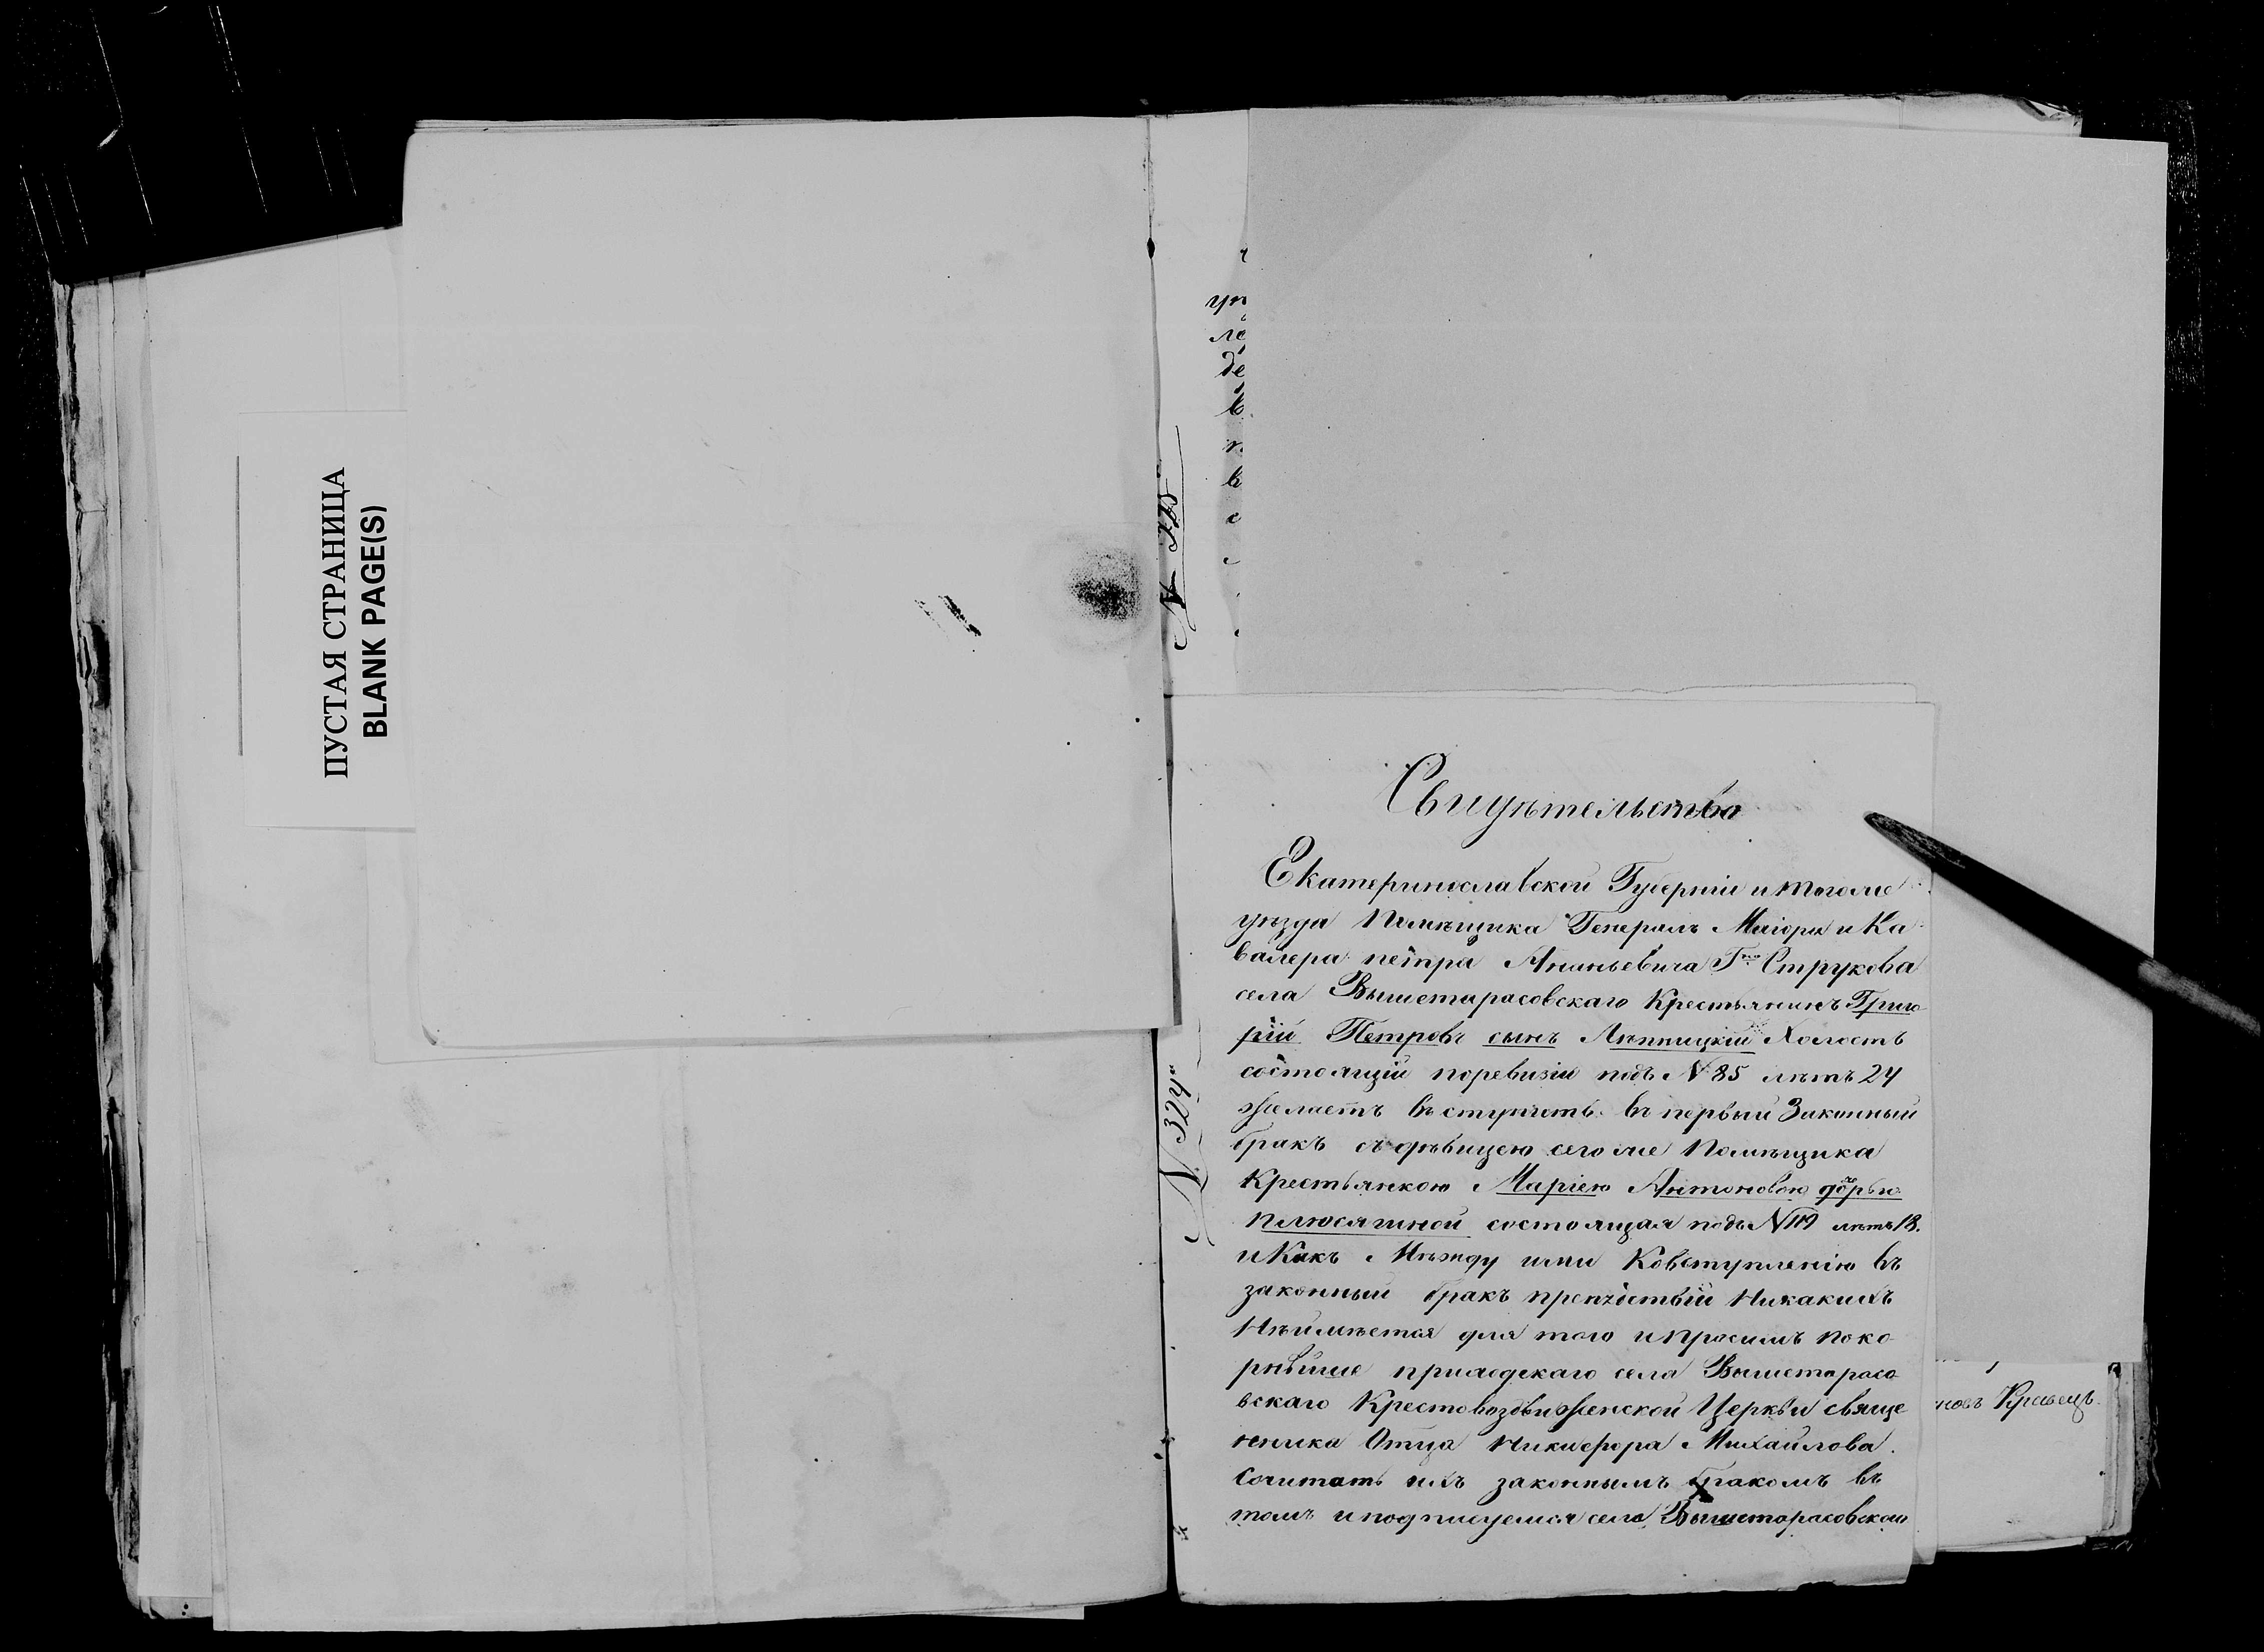 ПУСТАЯ СТРАНИЦА
BLANK PAGE(S)
ле
де
в
п
в
с
N 325
N 324й
Свидѣтельство
Екатеринославской Губерніи и тогоже
уѣзда Помѣщика Генералъ Маіора и Ка
валера петра Ананьевича Гна Струкова
села Вышетарасовскаго Крестьянинъ Григо
рій Петровъ сынъ Лѣпницкій Холостъ
состоящій поревизіи подъ N 85 лѣтъ 24
желаетъ вступить въ первый Законный
бракъ съ дѣвицею сего же Помѣщика
Крестьянкою Маріею Антоновою дочерью
плюсягиной состоящая подъ N 119 лѣтъ 18.
и Какъ Мѣжду ими Ковступленію въ
законный бракъ препятствій Никакихъ
Нѣимѣется для того и просимъ поко
рнѣйше приходскаго села Вышетарасо
вскаго Крестовоздвиженской Церкви свяще
нника Отца Никифора Михайлова.
Сочитать ихъ законнымъ бракомъ въ
томъ и подписуемся села Вышетарасовскаго
новъ Кравецъ